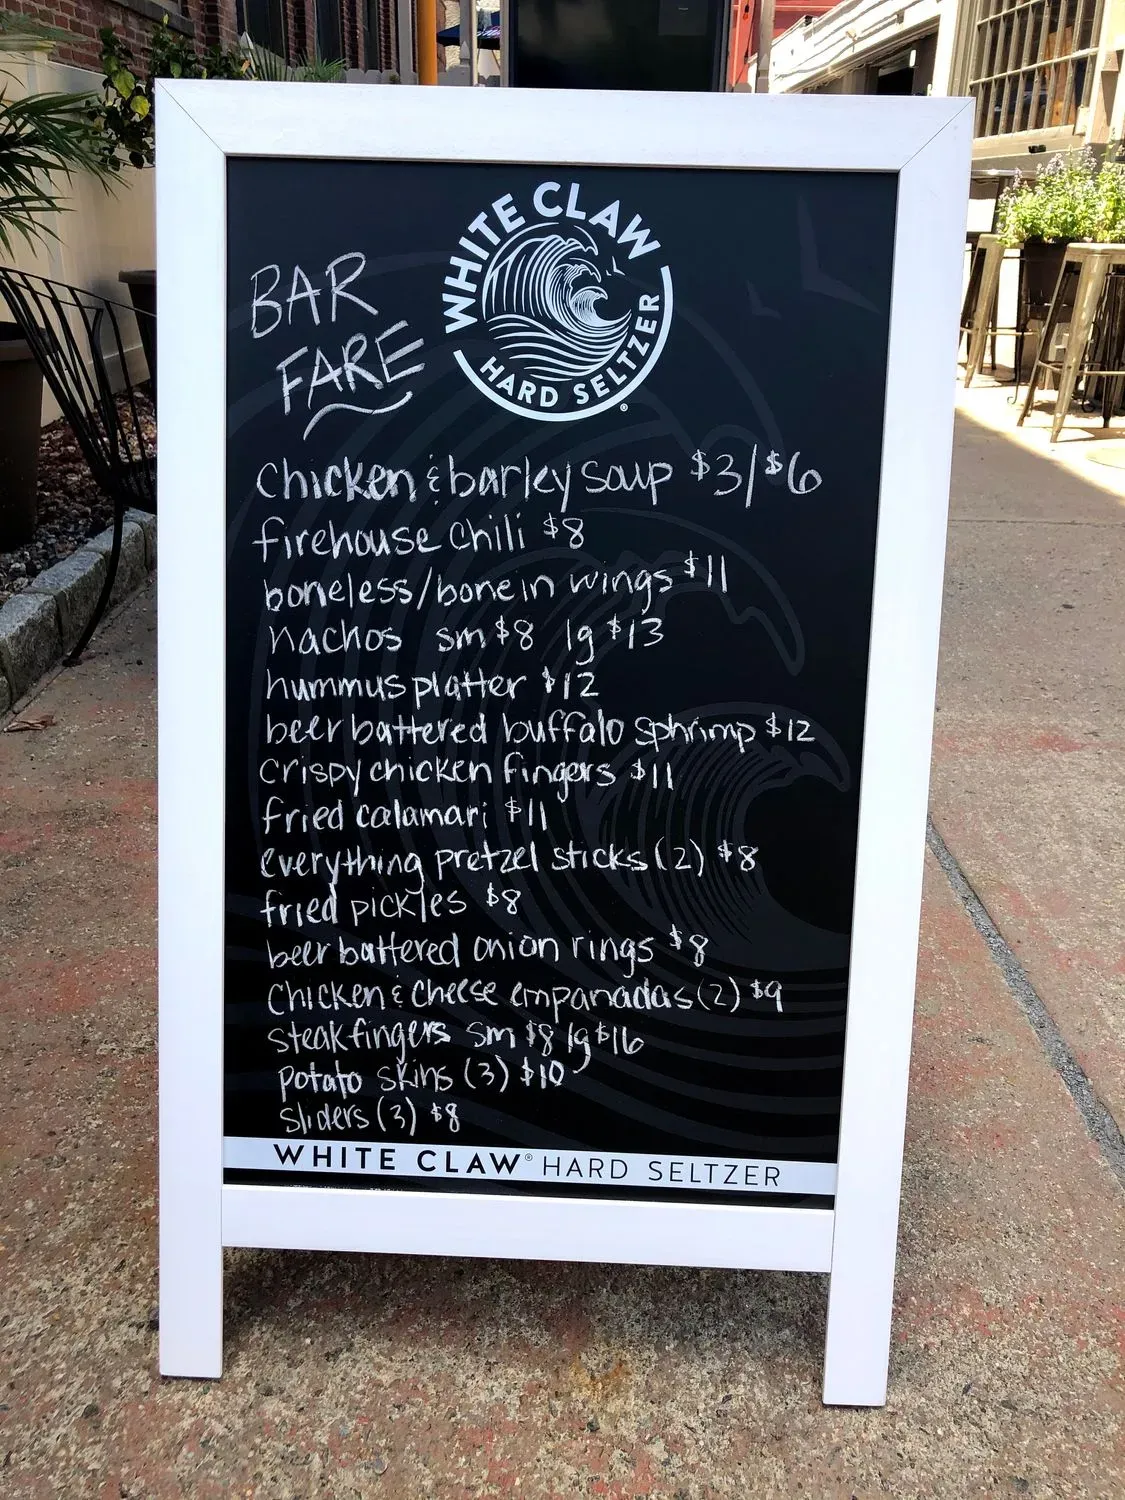 WHITE CLAW
HARD SELTZER
BAR
FARE
chicken & barley soup $3/$6
firehouse chili $8
boneless/bone in wings $11
nachos sm $8 lg $13
hummus platter $12
beer battered buffalo sphrimp $12
crispy chicken fingers $11
fried calamari $11
everything pretzel sticks (2) $8
fried pickles $8
beer battered onion rings $8
chicken & cheese empanadas (2) $9
steak fingers sm $8 lg $16
potato skins (3) $10
sliders (3) $8
WHITE CLAW® HARD SELTZER